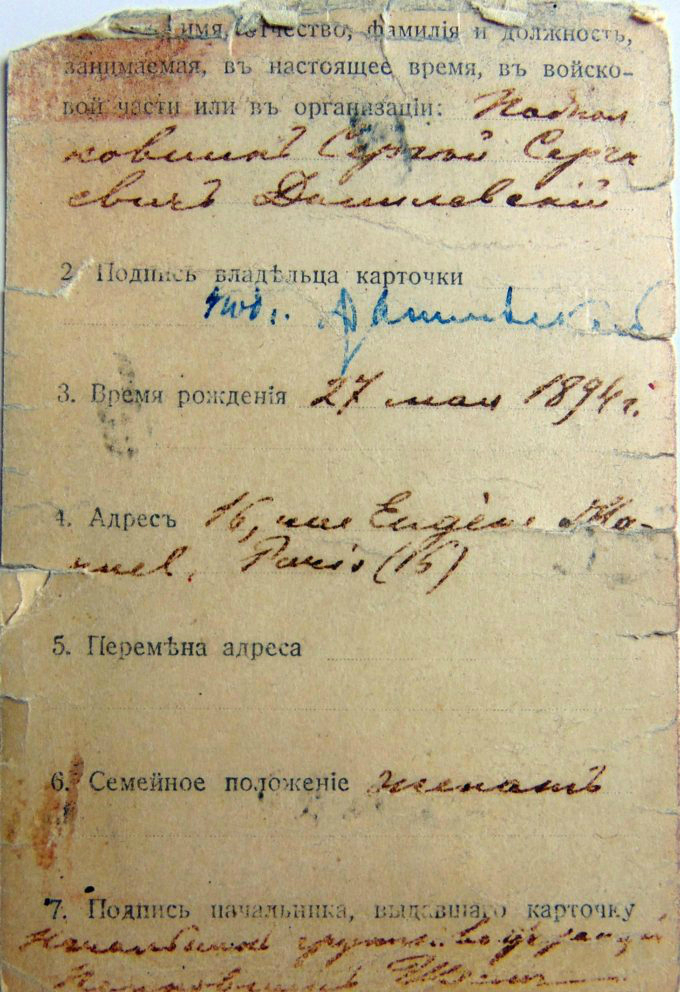 имя, отчество, фамилія и должность,
занимаемая, въ настоящее время, въ войско-
вой части или въ организаціи: Подпол
ковникъ Сергѣй Серге
евичъ Данилевскій
2. Подпись владѣльца карточки
Данилевскій
3. Время рожденія 27 мая 1894 г.
4. Адресъ 16, rue Eugène Ma-
nuel, Paris (16)
5. Перемѣна адреса
6. Семейное положеніе женатъ
7. Подпись начальника, выдавшаго карточку
Начальникъ группы во Франціи
Полковникъ